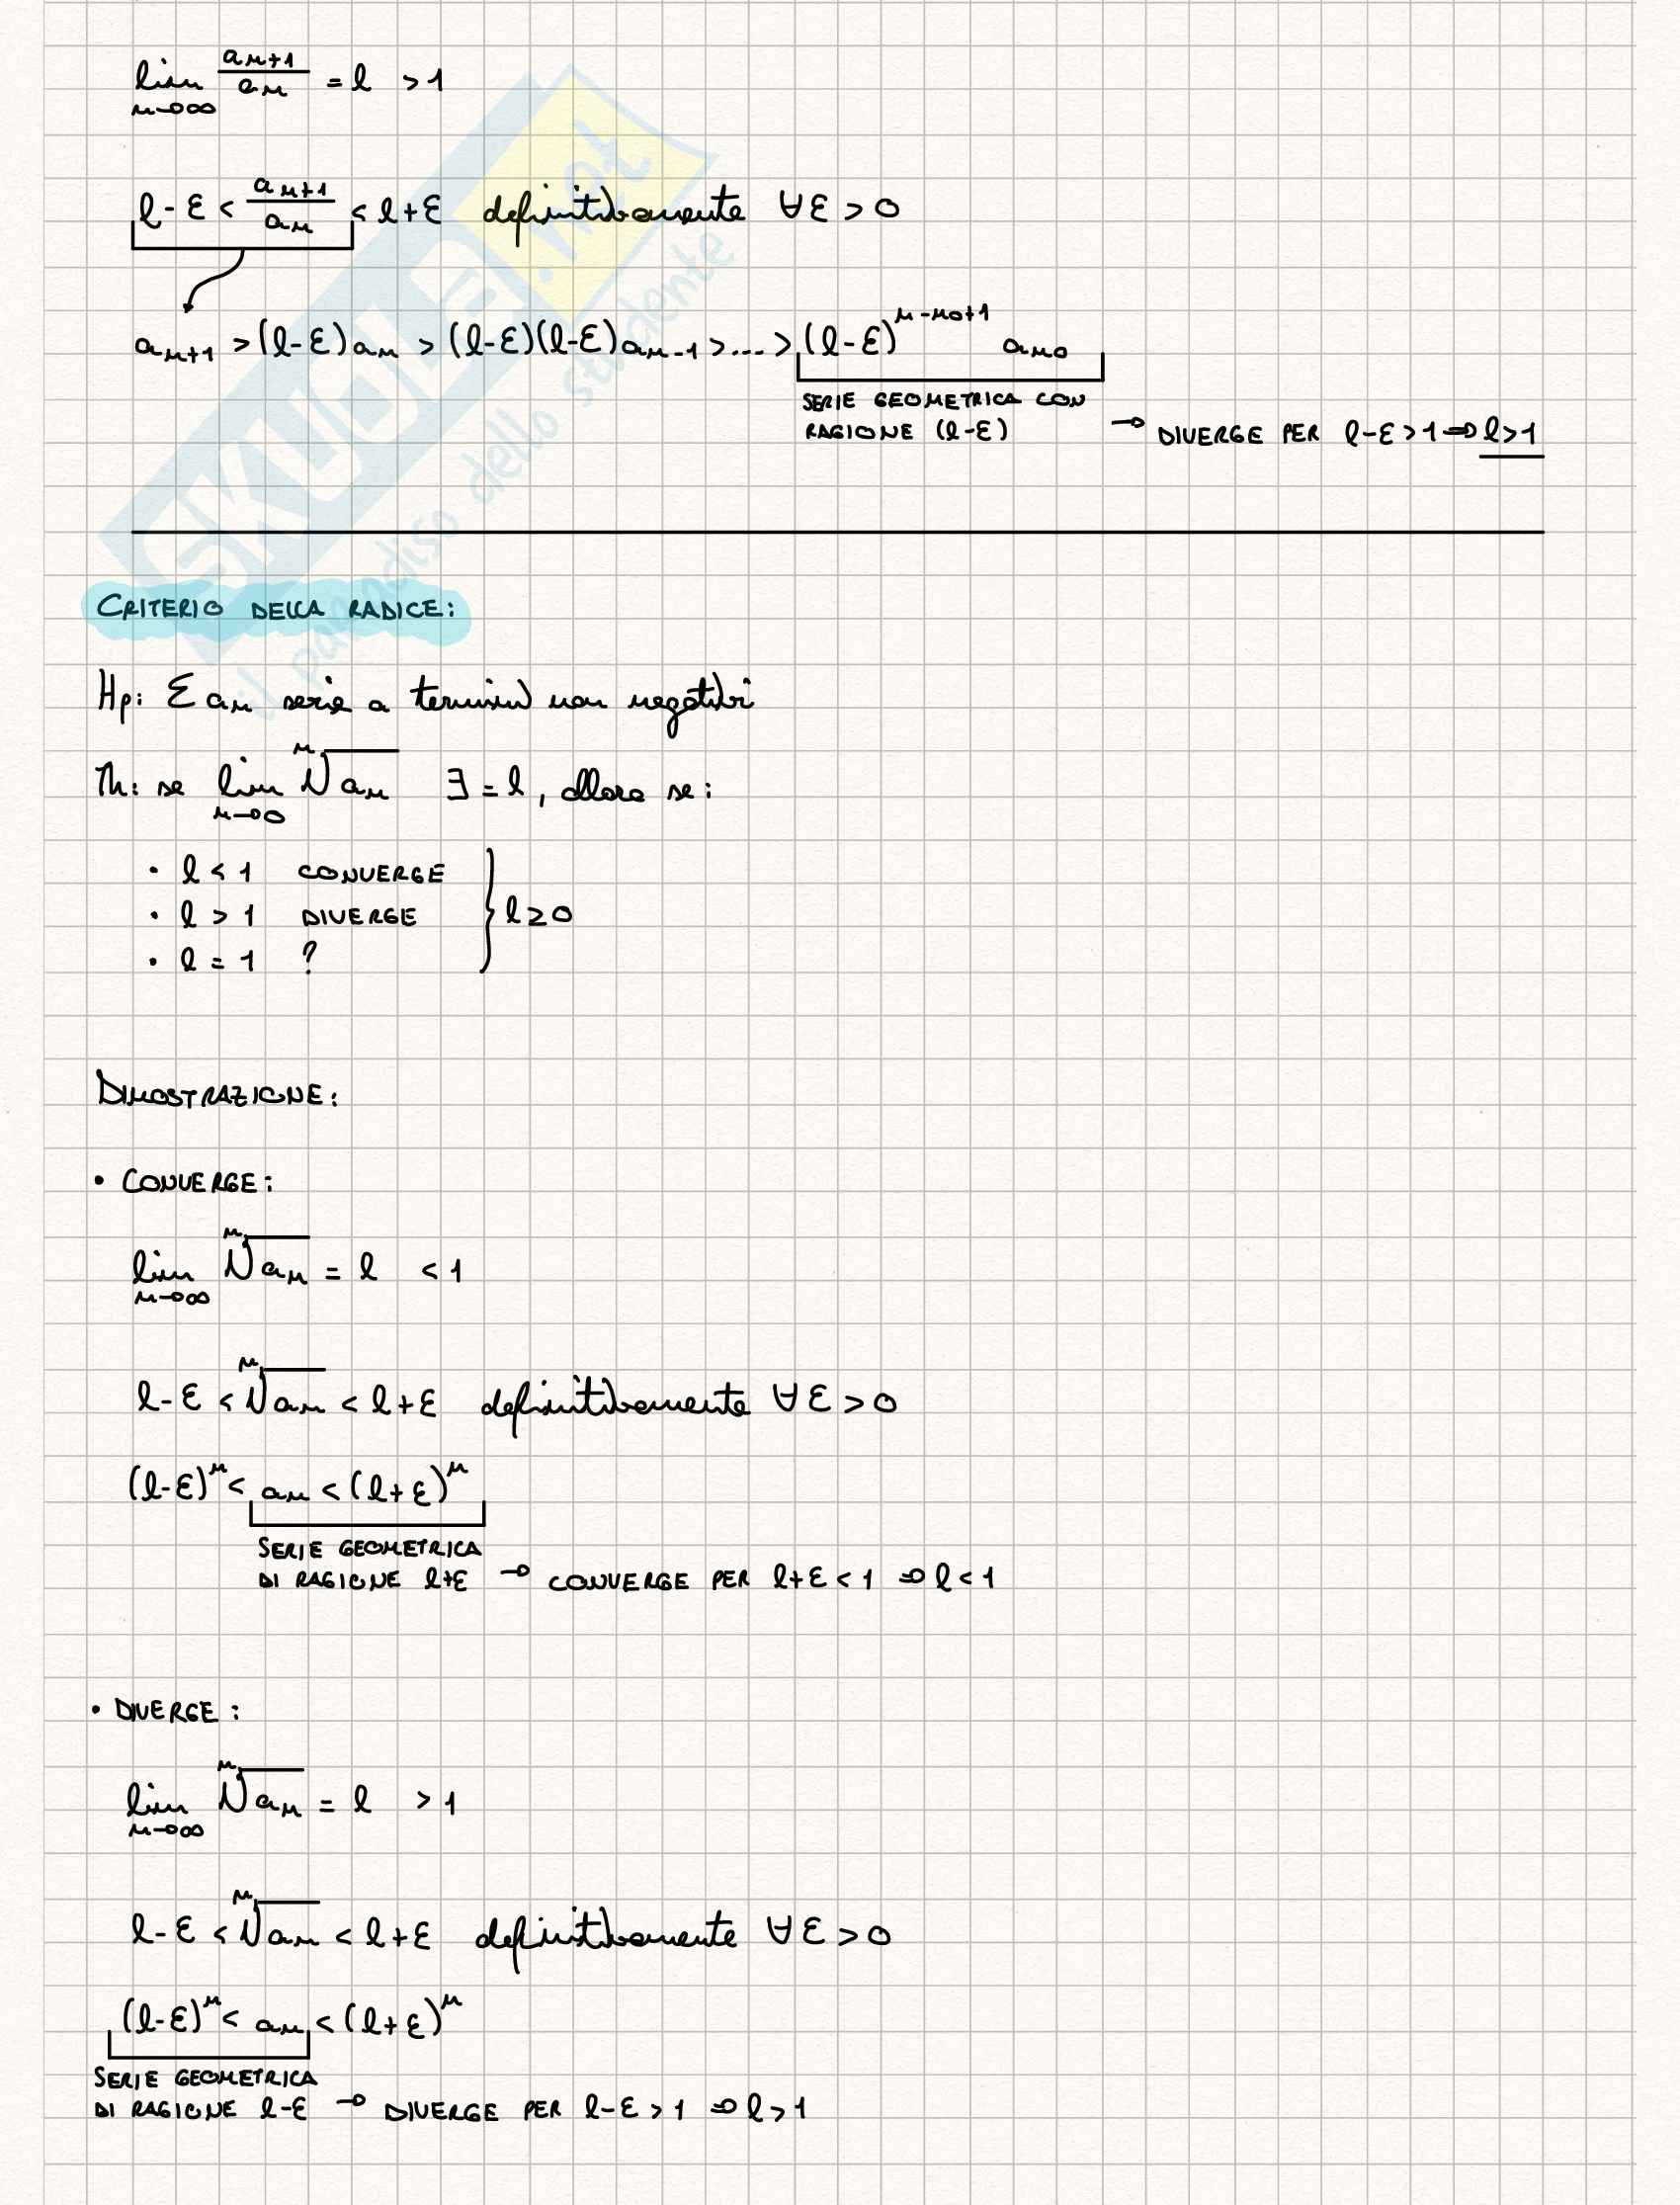 lim n→∞ aₙ₊₁/aₙ = l > 1
l-ε < aₙ₊₁/aₙ < l+ε definitivamente ∀ε > 0
aₙ₊₁ > (l-ε)aₙ > (l-ε)(l-ε)aₙ₋₁ > .... > (l-ε)^(n-n₀+1) aₙ₀
SERIE GEOMETRICA CON
RAGIONE (l-ε) → DIVERGE PER l-ε > 1 ⇒ l > 1
SKUOLA.net
il paradiso dello studente
CRITERIO DELLA RADICE:
Hp: Σ aₙ serie a termini non negativi
Th: se lim n→∞ ⁿ√aₙ ∃ = l, allora se:
• l < 1 CONVERGE
• l > 1 DIVERGE } l ≥ 0
• l = 1 ?
DIMOSTRAZIONE:
• CONVERGE:
lim n→∞ ⁿ√aₙ = l < 1
l-ε < ⁿ√aₙ < l+ε definitivamente ∀ε > 0
(l-ε)ⁿ < aₙ < (l+ε)ⁿ
SERIE GEOMETRICA
DI RAGIONE l+ε → CONVERGE PER l+ε < 1 ⇒ l < 1
• DIVERGE:
lim n→∞ ⁿ√aₙ = l > 1
l-ε < ⁿ√aₙ < l+ε definitivamente ∀ε > 0
(l-ε)ⁿ < aₙ < (l+ε)ⁿ
SERIE GEOMETRICA
DI RAGIONE l-ε → DIVERGE PER l-ε > 1 ⇒ l > 1